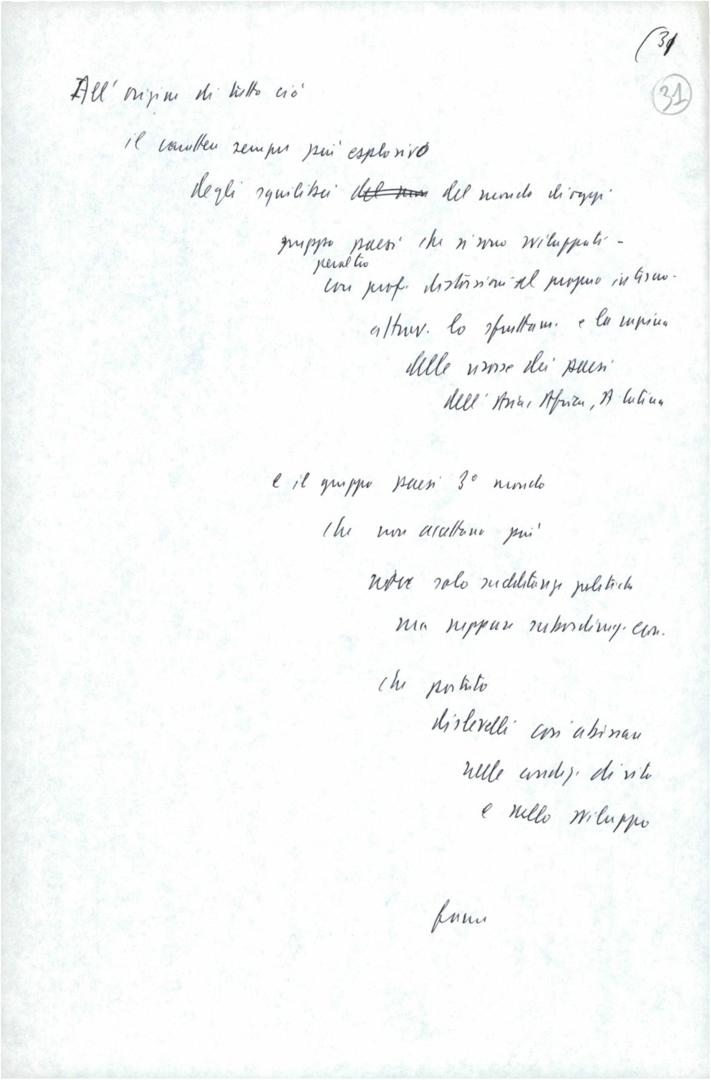 (31
31
All'origine di tutto ciò
il carattere sempre più esplosivo
degli squilibri del mondo di oggi
gruppo paesi che si sono sviluppati -
peraltro
con prof. distorsioni al proprio interno -
attrav. lo sfruttam. e la rapina
delle risorse dei paesi
dell'Asia, Africa, A latina
e il gruppo paesi 3° mondo
che non accettano più
non solo sudditanze politiche
ma neppure subordinaz. econ.
che portato
dislevelli così abissali
nelle condiz. di vita
e nello sviluppo
fame